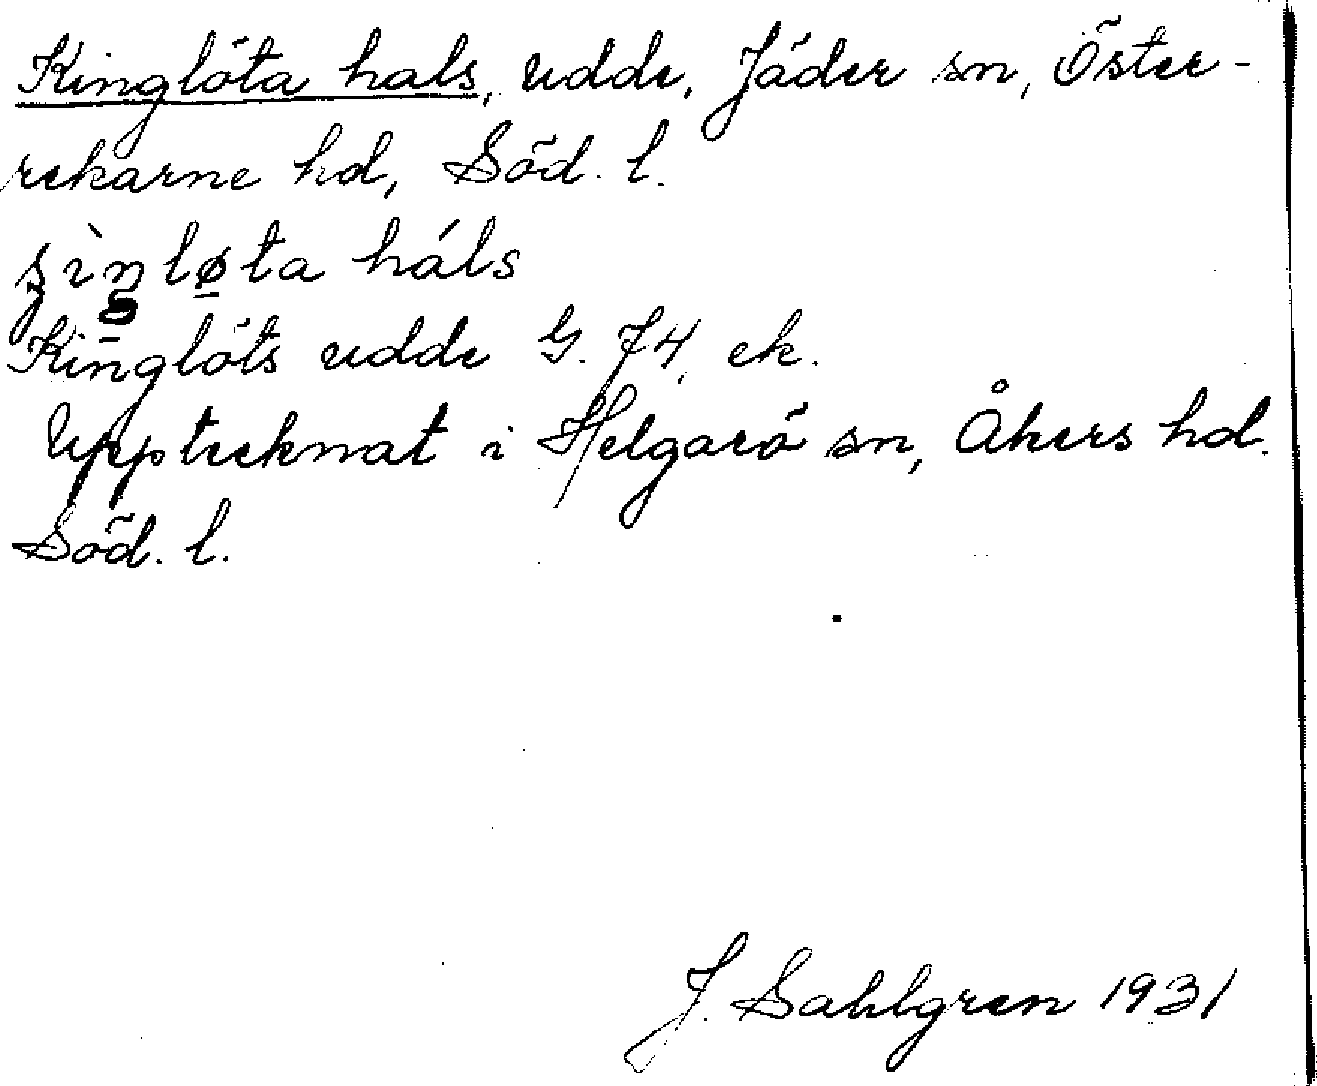 Kinglöta hals, udde, Jäder sn, Öster-
rekarne hd, Söd. l.
ʂìŋlø̠ta háls
Kinglöts udde G. 74, ek.
Upptecknat i Helgarö sn, Åkers hd.
Söd. l.
J. Sahlgren 1931